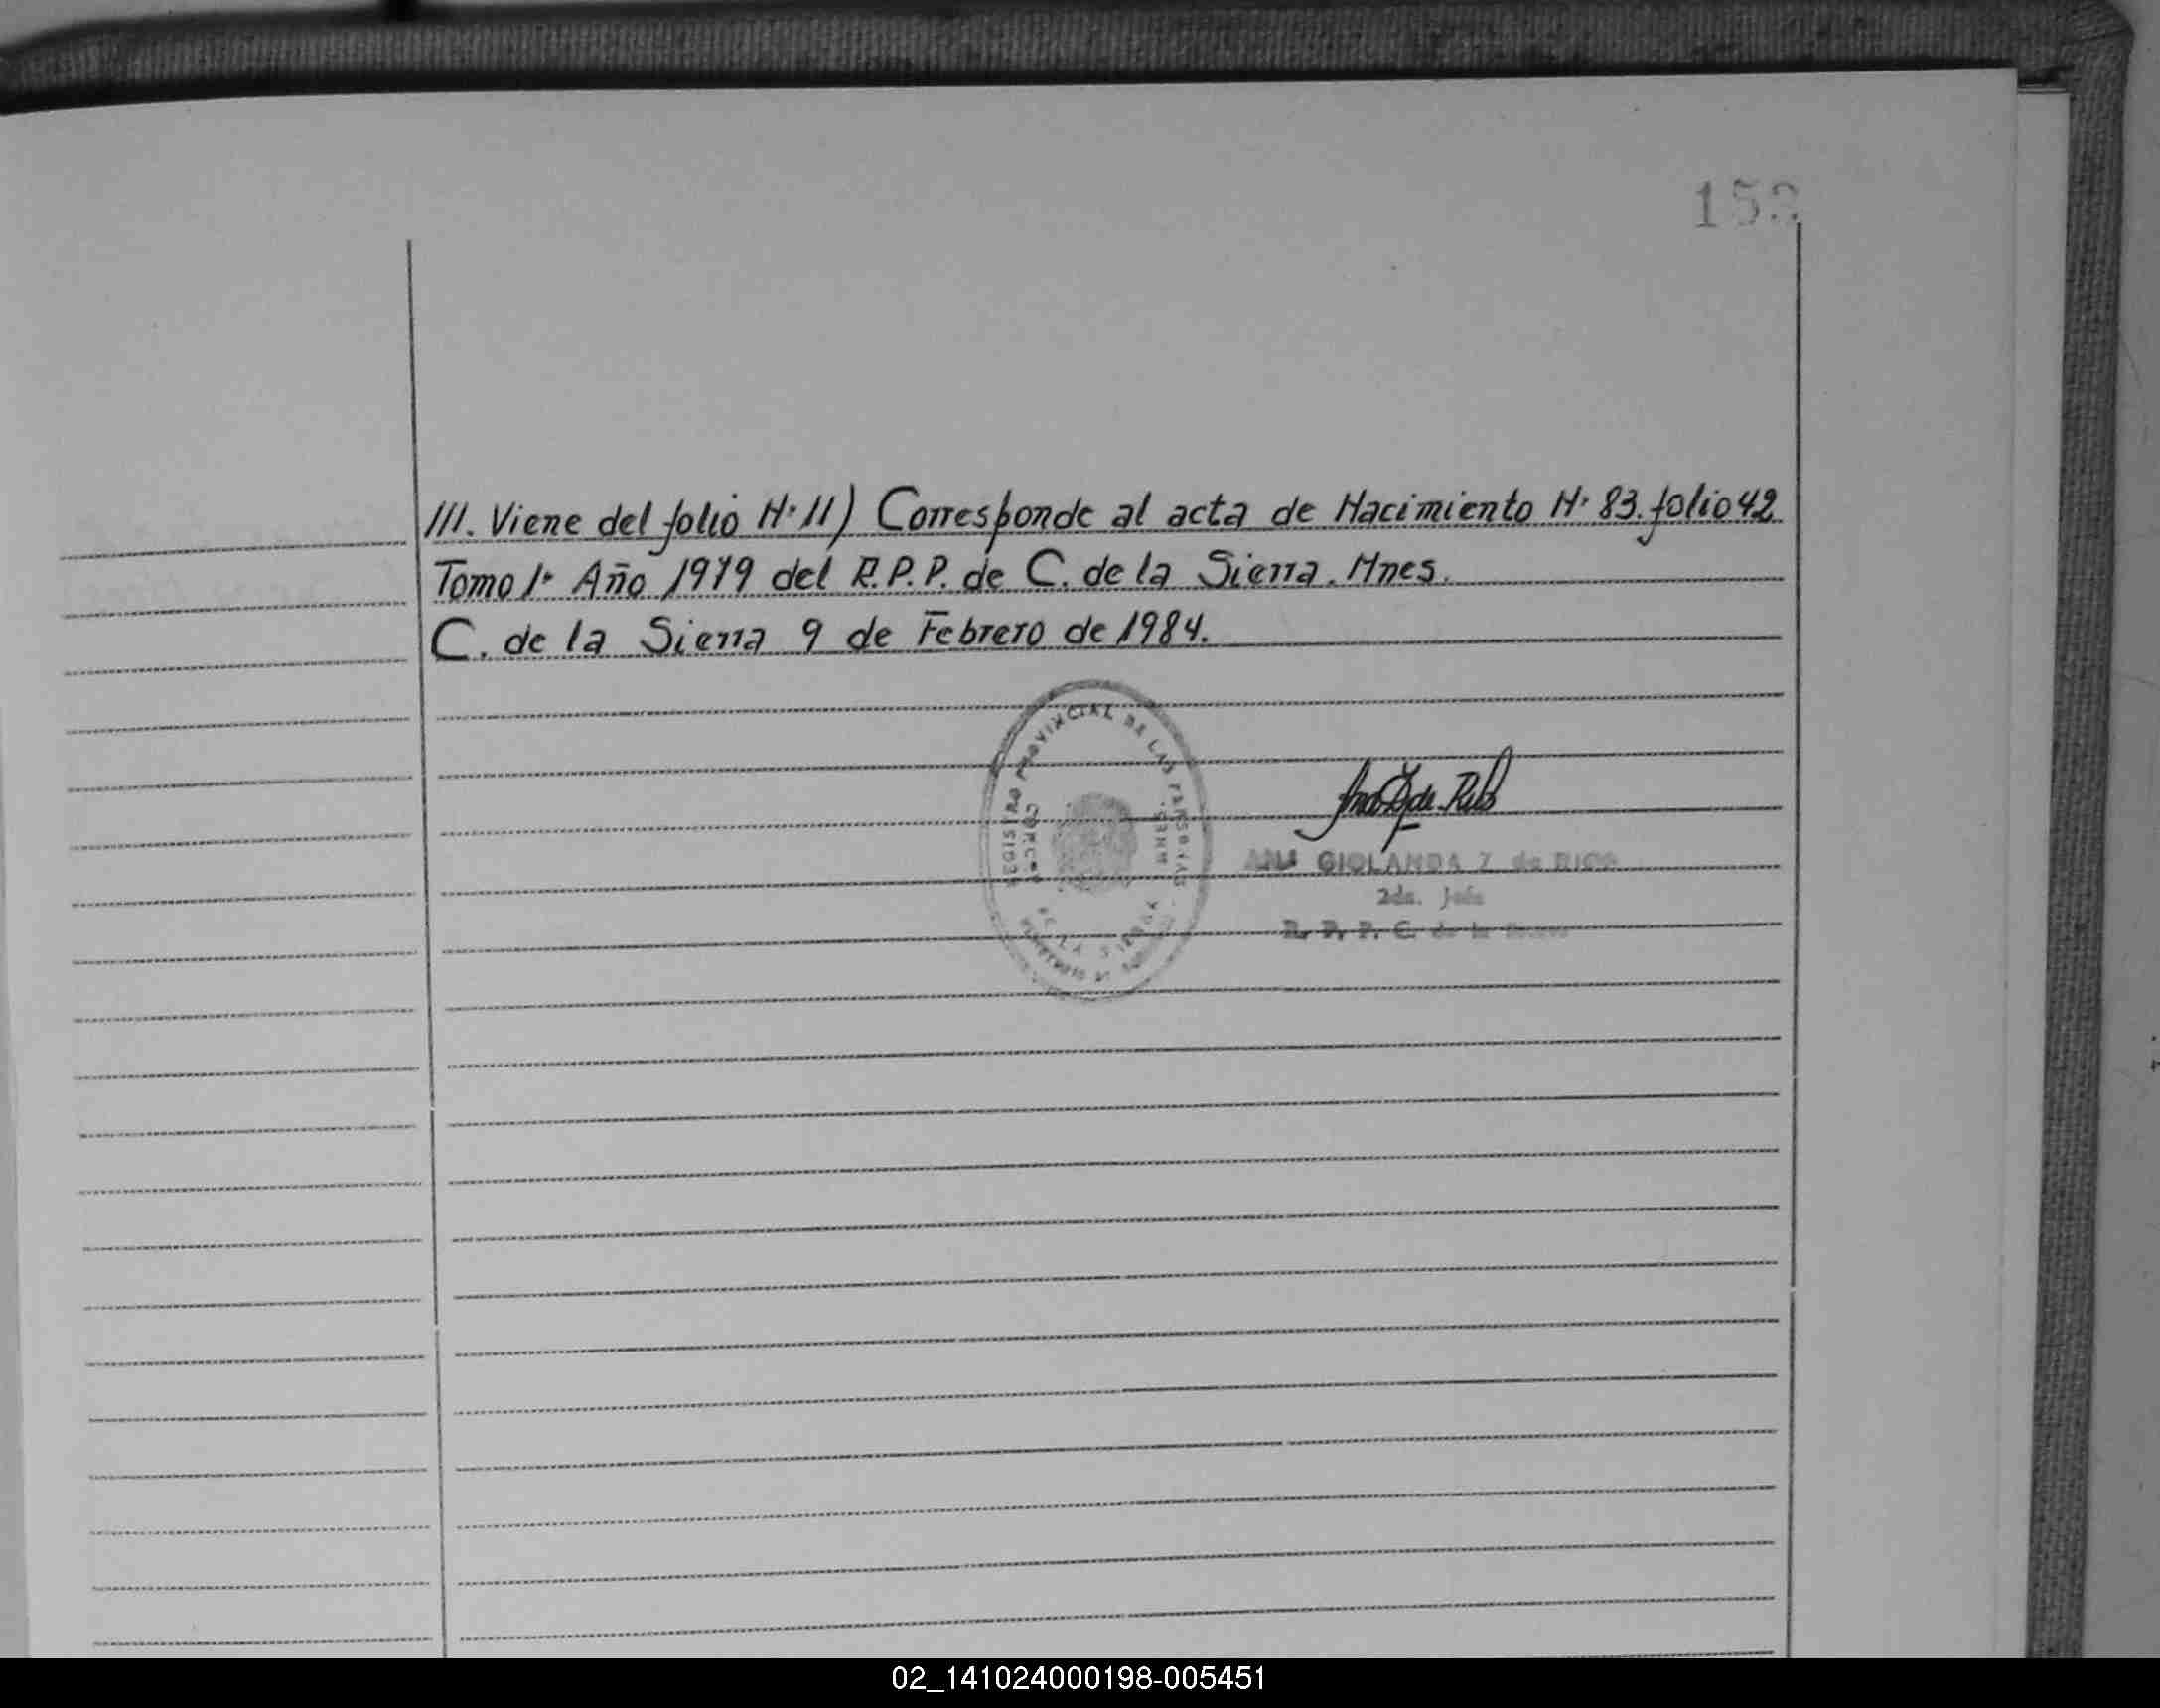 III. Viene del folio N° 11) Corresponde al acta de Nacimiento N° 83. folio 42
Tomo 1° Año 1979 del R.P.P. de C. de la Sierra. Mnes.
C. de la Sierra 9 de Febrero de 1984.
REGISTRO PROVINCIAL DE LAS PERSONAS
DE LA SIERRA
GIOLANDA Z de RICO
2da. Jefe
R. P. P. C. de la
02_141024000198-005451